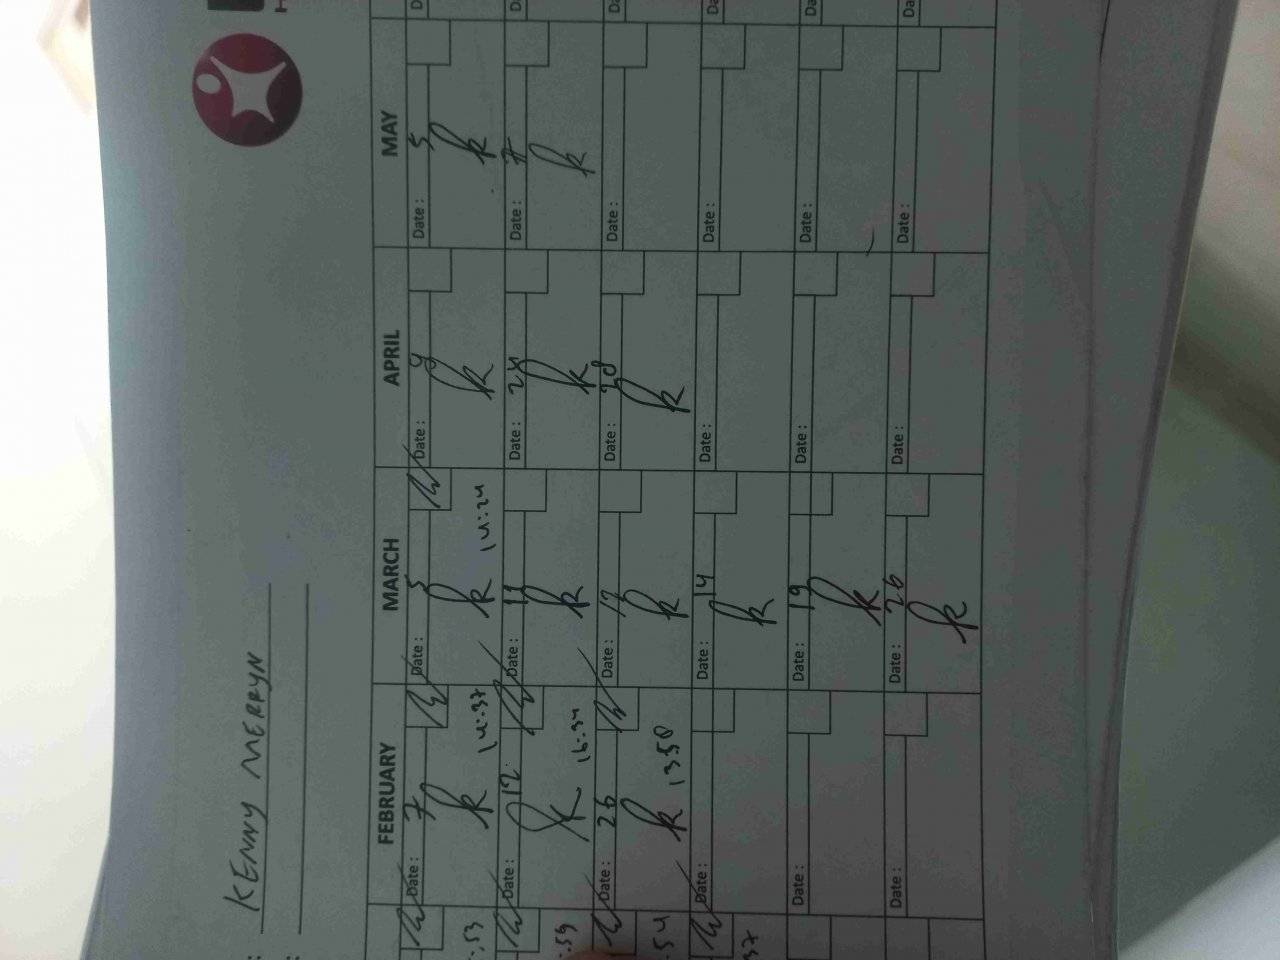 KENNY MERRYN
FEBRUARY MARCH APRIL MAY
Date : 7 Date : 5 Date : 9 Date : 5
14:37 14:24
Date : 12 Date : 11 Date : 24 Date : 7
16:34
Date : 26 Date : 12 Date : 28 Date :
1358
Date : Date : 14 Date : Date :
Date : Date : 19 Date : Date :
Date : Date : 26 Date : Date :